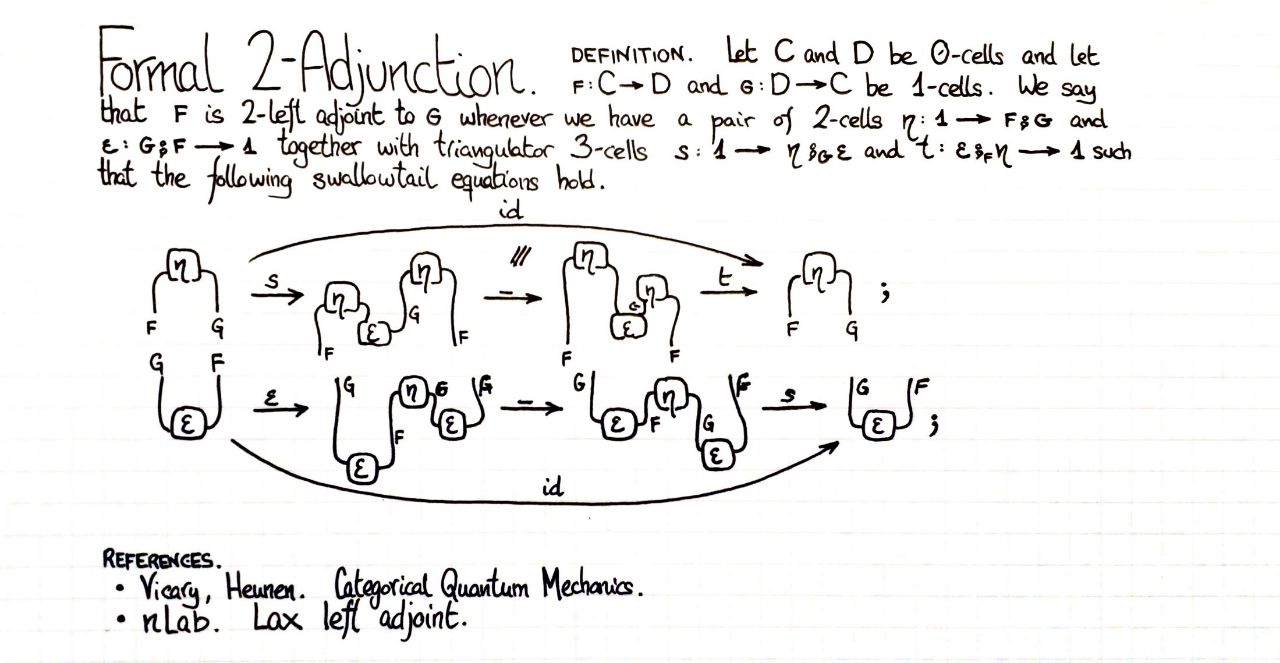 Formal 2-Adjunction.
DEFINITION. Let C and D be 0-cells and let
F:C→D and G:D→C be 1-cells. We say
that F is 2-left adjoint to G whenever we have a pair of 2-cells η: 1 → F⨾G and
ε: G⨾F → 1 together with triangulator 3-cells s: 1 → η⨾Gε and t: ε⨾Fη → 1 such
that the following swallowtail equations hold.
id
η s η ε η G F F - η G ε η F F t η ;
F G F G
G F
ε ε G ε F η G ε G - G ε F η G ε F s G ε F ;
id
REFERENCES.
• Vicary, Heunen. Categorical Quantum Mechanics.
• nLab. Lax left adjoint.